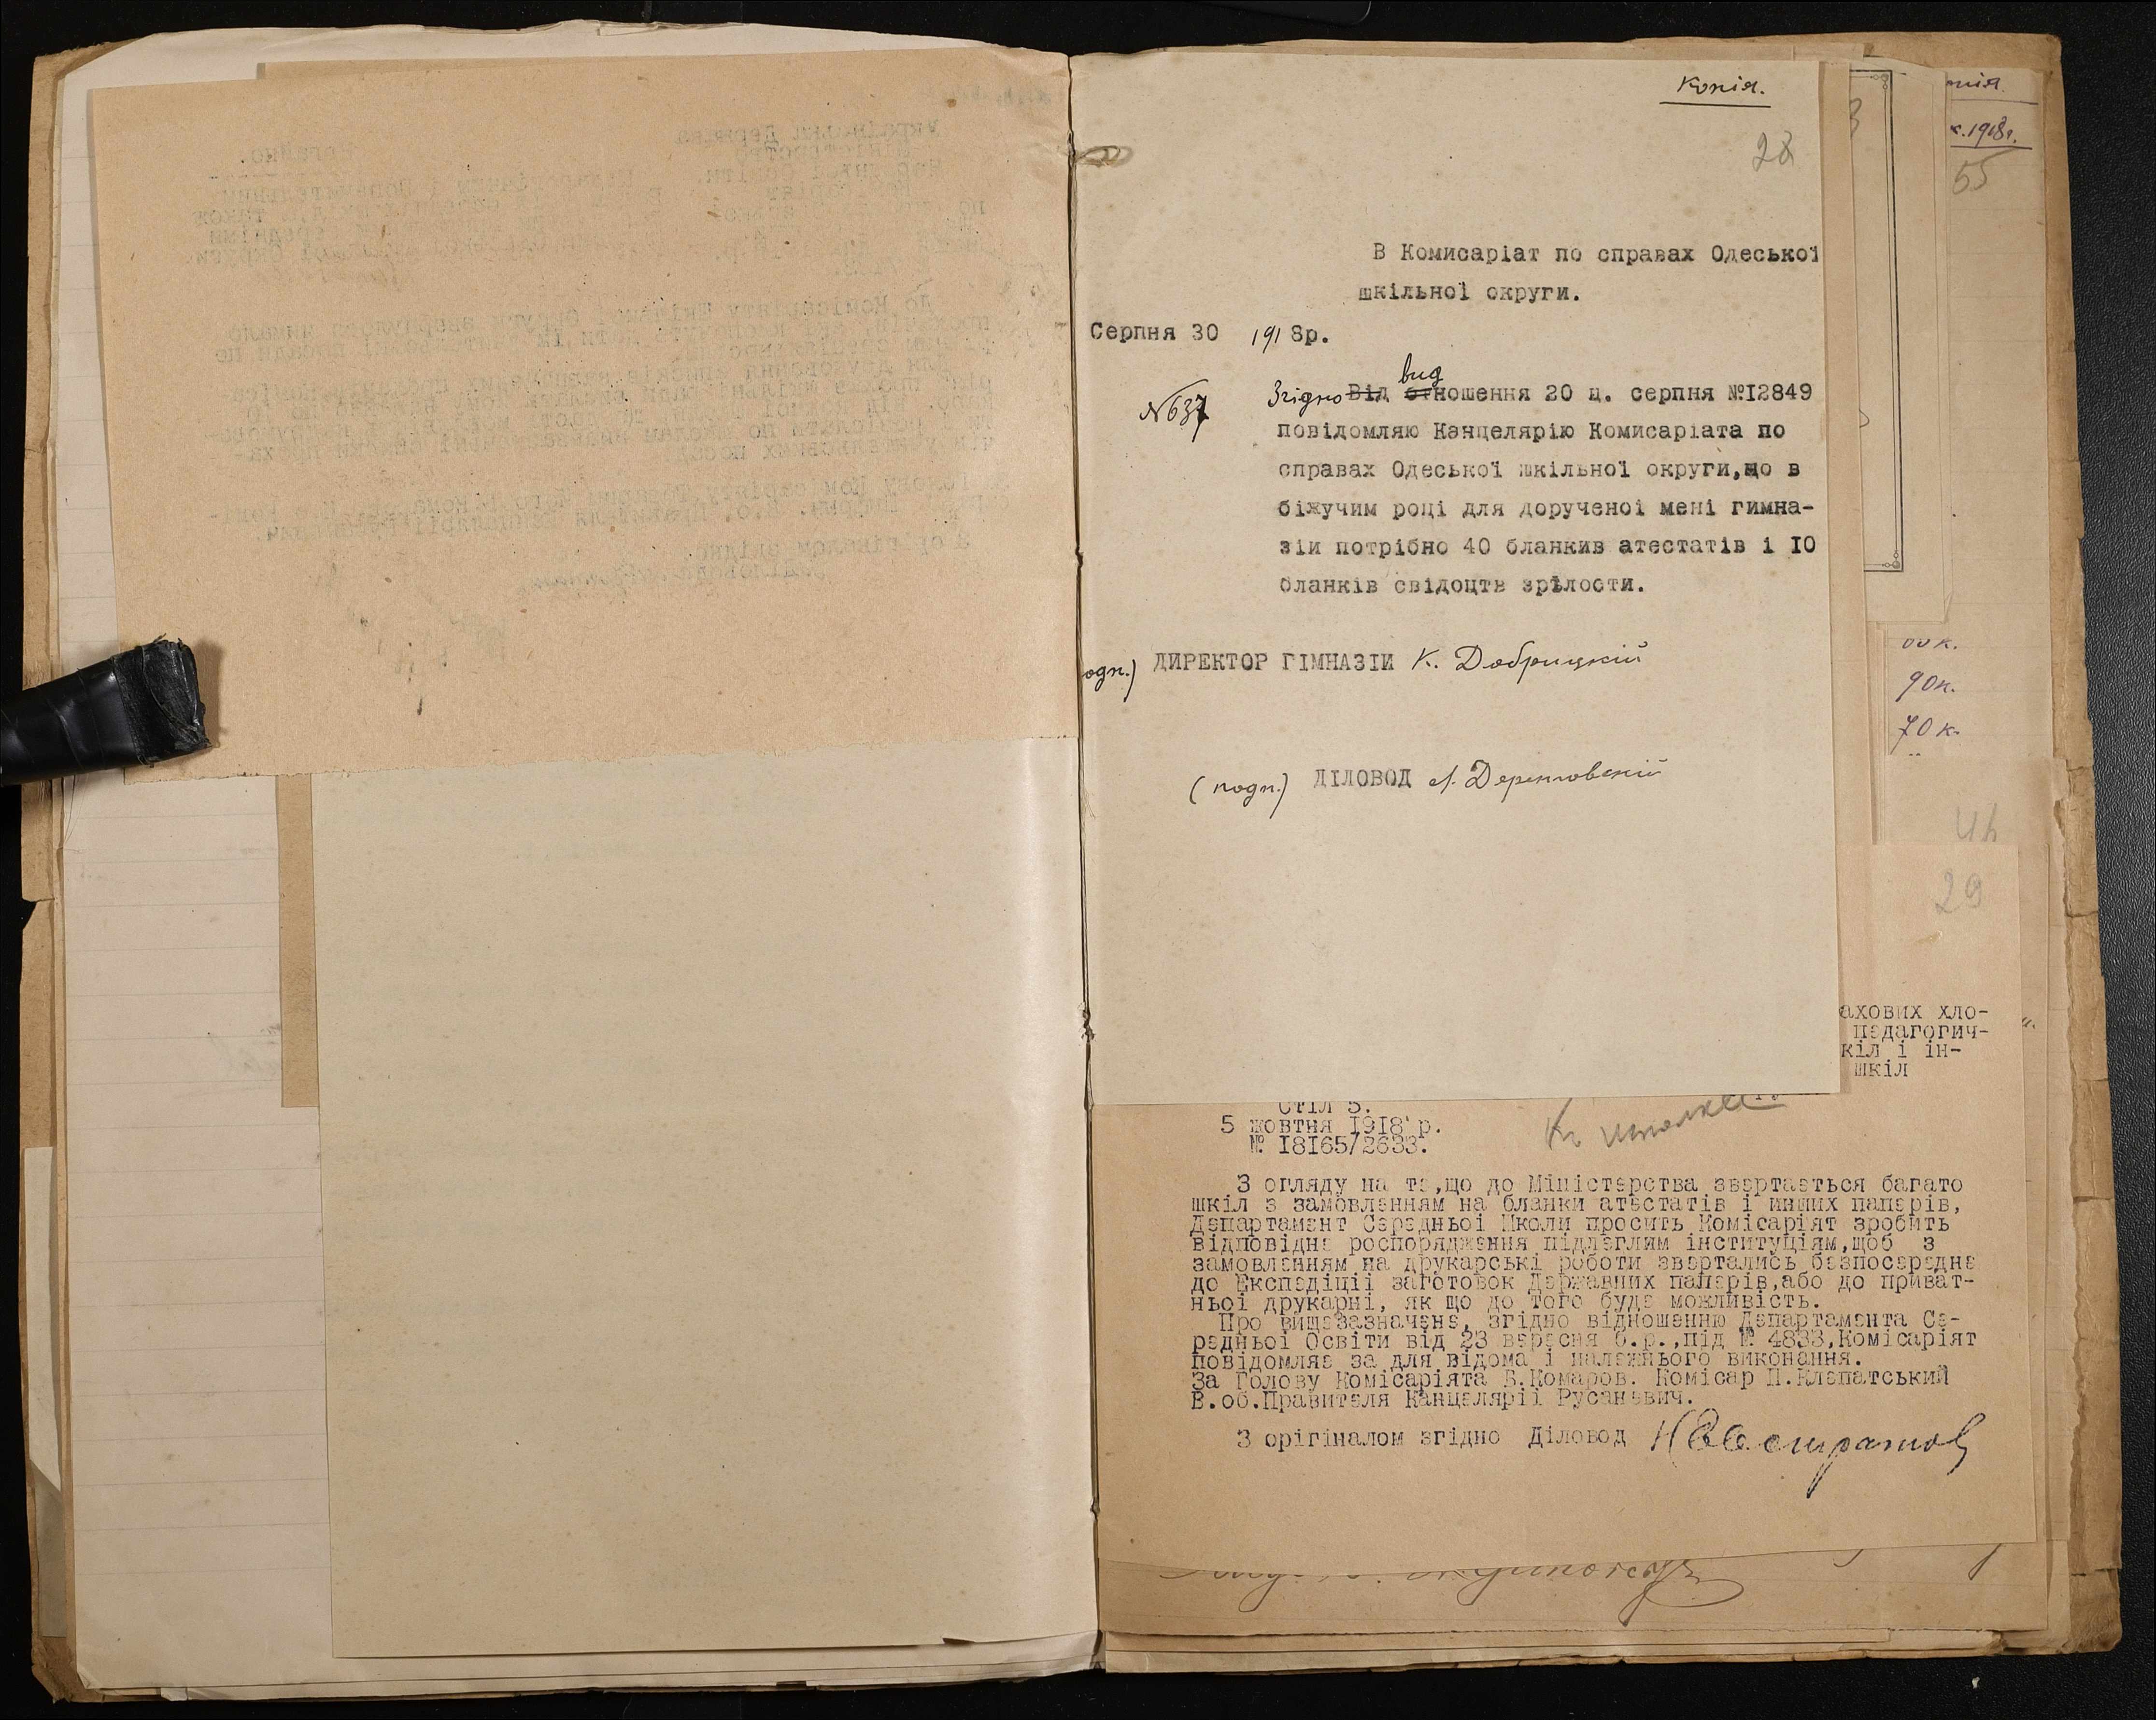 Копія.
28
В Комисаріат по справах Одеської
шкільної округи.
Серпня 30 1918р.
№637
вид
Згідно Від отношення 20 ц. серпня №I2849
повідомляю Канцелярію Комисаріата по
справах Одеської шкільної округи,що в
біжучим році для дорученоі мені гимна-
зіи потрібно 40 бланкив атестатів і IO
бланків свідоцтв зрілости.
одп.) ДИРЕКТОР ГІМНАЗІИ К. Добрицкій
(подп.) ДІЛОВОД
пія.
к.1918г.
55
00 к.
90к.
70 к.
29
ахових хло-
педагогич-
кіл і ін-
шкіл
Стіл 5.
5 жовтня I9I8 р.
№ I8I65/2633.
З огляду на те,що до Міністерства звертається багато
шкіл з замовленням на бланки атестатів і инших паперів,
Департамент Середньоі Школи просить Комісаріят зробить
відповідне роспорядження підлеглим інституціям,щоб з
замовленням на друкарські роботи звертались безпосередне
до Експедіціі заготовок Державних паперів,або до приват-
ньоі друкарні, як що до того буде можливість.
Про вищезазначене, згідно відношенню Департамента Се-
редньоі Освіти від 23 вересня б.р.,під № 4833,Комісаріят
повідомляє за для відома і належнього виконання.
За Голову Комісаріята Б.Комаров. Комісар П.Клепатський
В.об.Правителя Канцеляріі Русаневич.
З орігіналом згідно Діловод